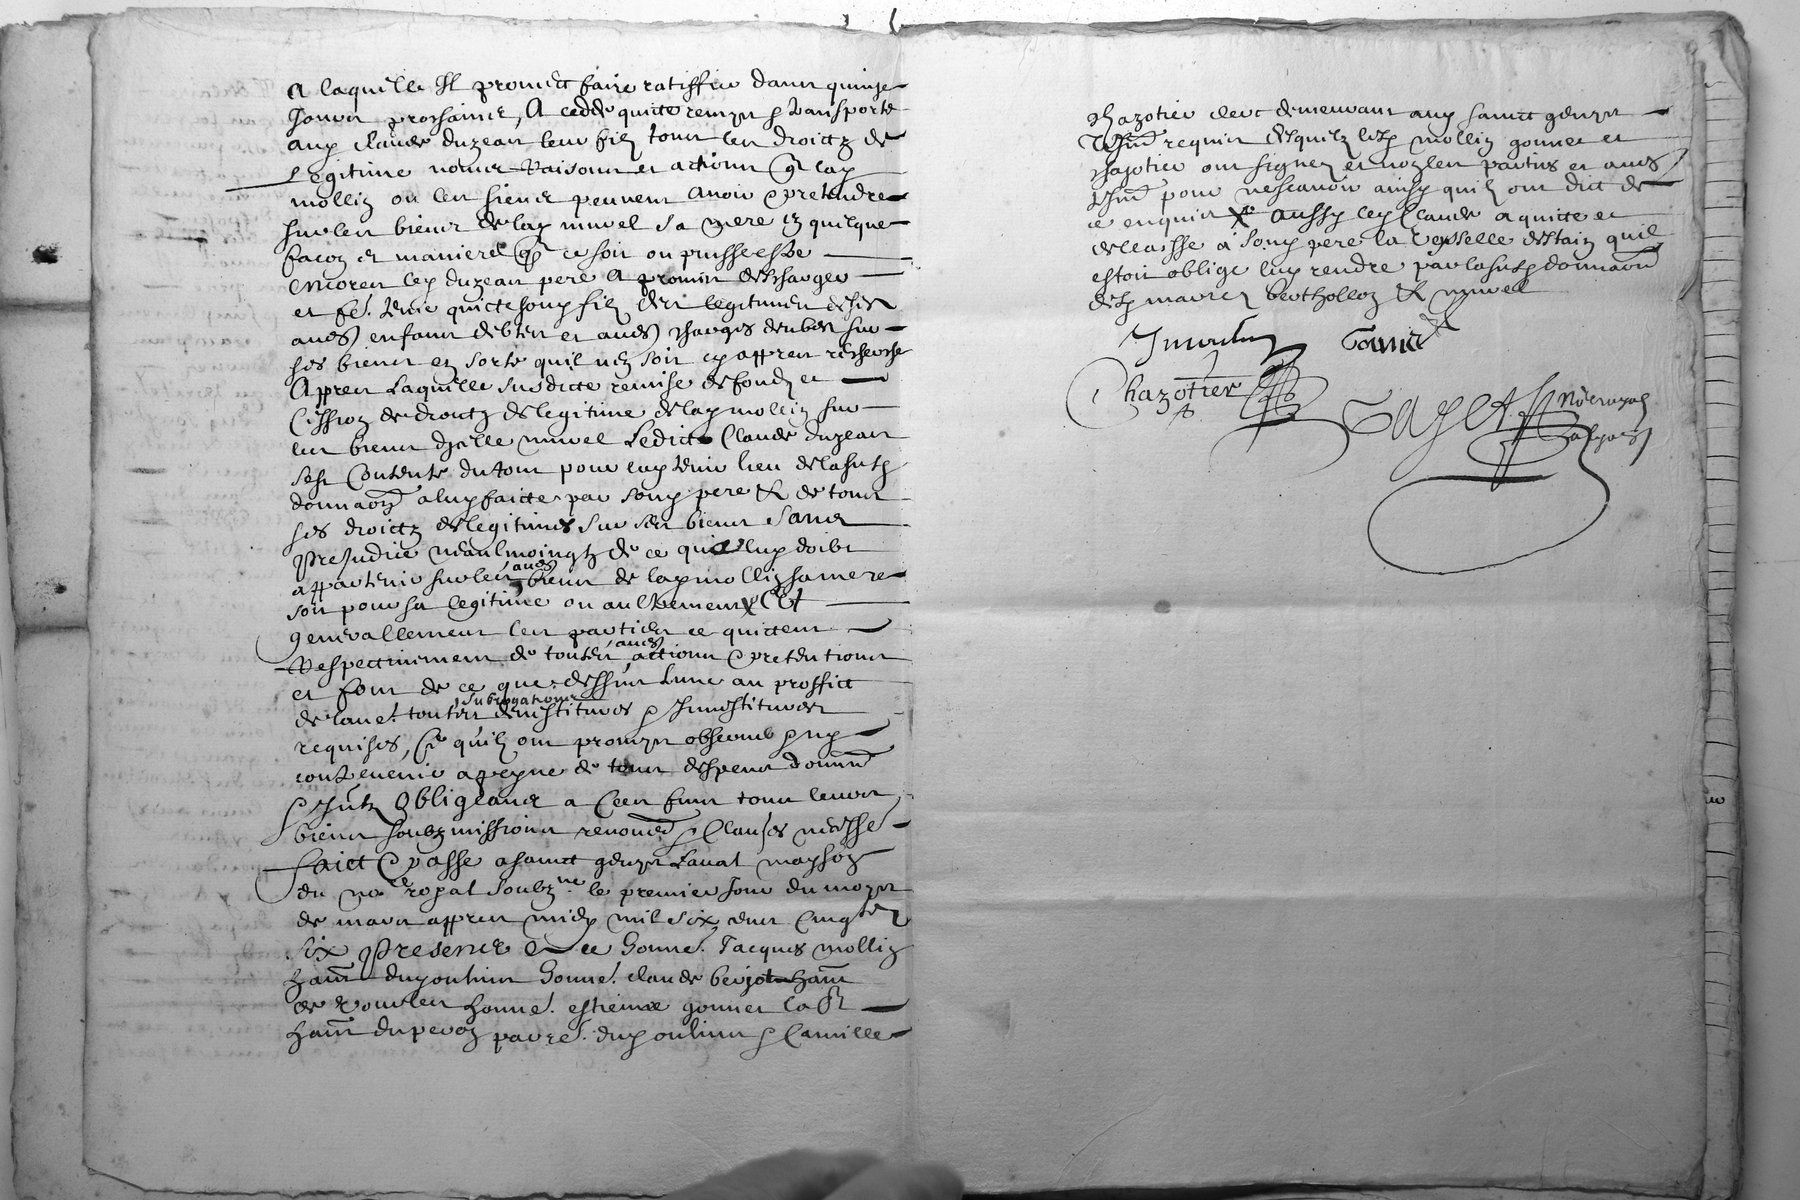 A laquelle Il promect faire ratiffier dans quinze
Jours prochains, A cedde quicte remys & transporte
aud Claude duzean leur filz tous les droictz de
legitime noms Raisons et actions q lad
mollin ou les siens peuvent avoir & pretendre
sur les biens de lad muvel sa mere en quelque
facon et maniere q ce soit ou puisse estre
Encores led duzean pere A promis descharger
et fe. tenir quicte sond filz des legitimes de ses
au{es} enfans debtes et au{es} charges deubes sur
ses biens en sorte quil nen soit cy appres recherche
Appres Laquelle susdicte remise de fondz et
Cession de droictz de legitime de lad mollin sur
les biens d'jcelle muvel Ledict Claude duzean
sest Contente du tout pour luy tenir lieu de la susd
donnaon a luy faicte par sond pere & de tous
ses droictz de legitimes sur ses biens sans
Prejudice neaulmoingtz de ce qui luy doibt
appartenir sur les au{es} biens de lad mollin sa mere
soit pour sa legitime ou aultrement Et
generallement les parties ce quictent
Respectivement de toutes au{es} actions & pretentions
et font de ce que dessus lune au proffict
de laue. toutes subrogations demistitures & Jnvestitures
requises, Ce quilz ont promys observer & ny
contrevenir a peyne de tous despens domm
& Jntz Obligeans a Ces fins tous leurs
biens soubzmissions renoues & Clauses necesse
faict & passe a sainct genys Laval mayson
du no.re royal soubz.ne le premier Jour du moys
de mars appres midy mil six cens Cinq
six Presence de honne. Jacques mollin
hant dud oulins honne. claude berjot hant
de honne. estienne gonnet
hant du peron parre. dud oulins & Camille
Chazotier clerc demeurant aud sainct genys
Tesm requis desquelz lesd mollin gonnet et
chazotier ont signez et non les parties et au{es}
tesm pour ne scavoir ainsy quilz ont dict de
ce enquis X Aussy led Claude a quicte et
dellaisse a sond pere la vesselle destain quil
estoit oblige luy rendre par la susd donnaon
desd mariez berthollon & muvel
J mollin Gonnet
Chazottier
GAYET No.re royal